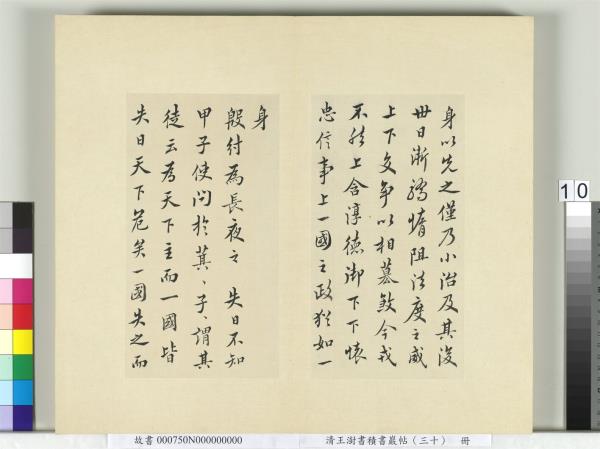 身以先之僅乃小治及其後
世日漸驕惰阻法度之威
上下交争以相墓敓今戎
不然上含淳德御下下懐
忠信事上一國之政猶如一
身
殷紂為長夜之 失日不知
甲子使问於箕、子、謂其
徒云為天下主而一國皆
失日天下危矣一國失之而
10
故書 000750N000000000
清王澍書積書巖帖（三十） 冊